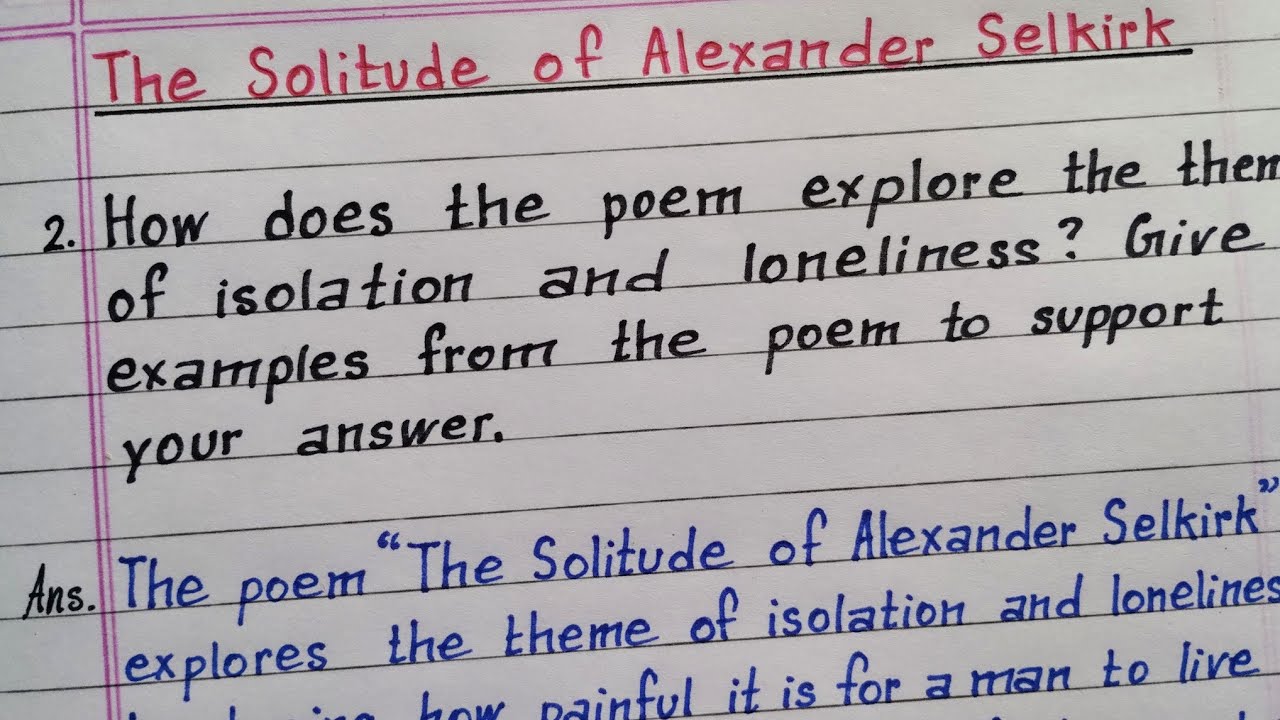 The Solitude of Alexander Selkirk
2. How does the poem explore the them
of isolation and loneliness? Give
examples from the poem to support
your answer.
Ans. The poem "The Solitude of Alexander Selkirk"
explores the theme of isolation and lonelines
how painful it is for a man to live